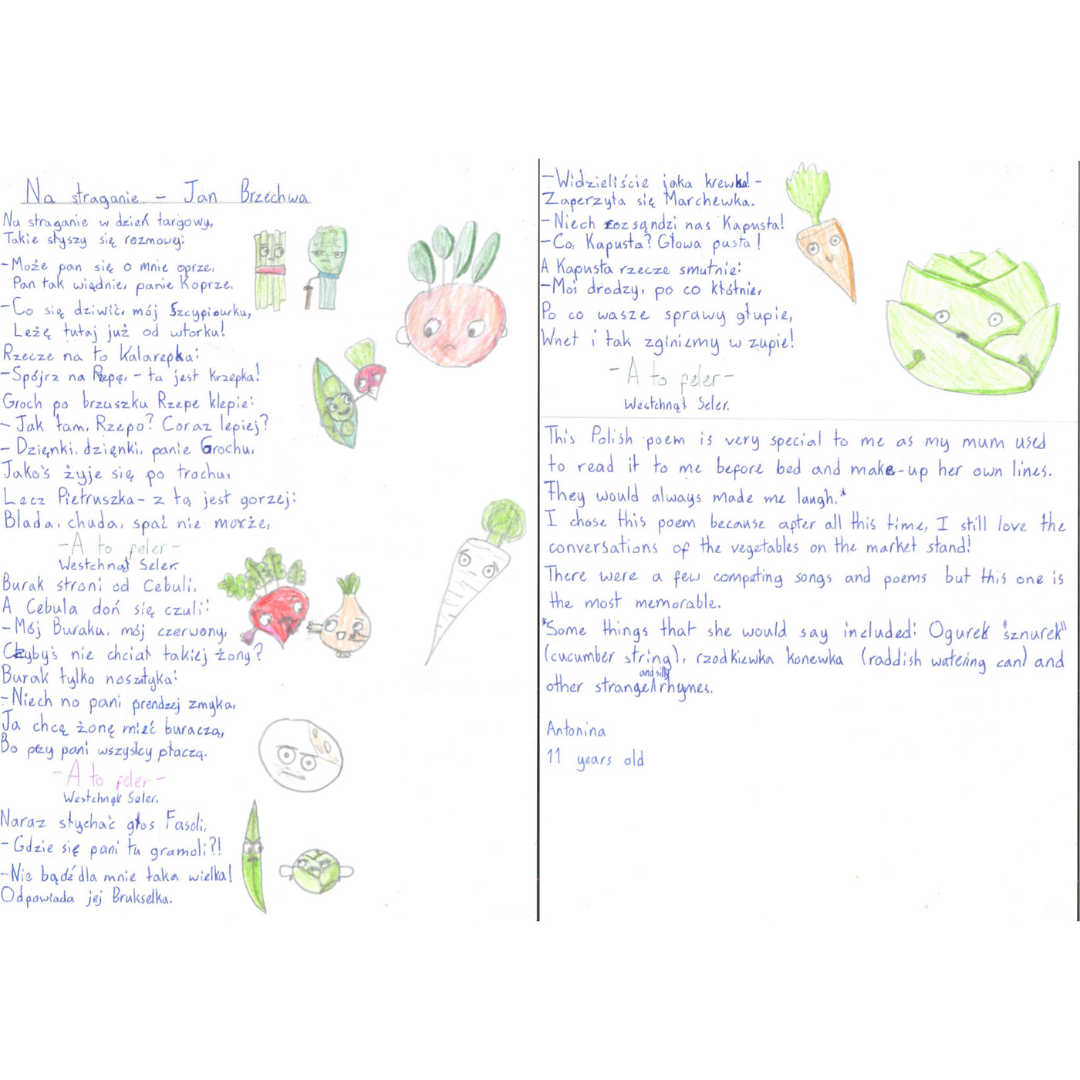 Na straganie - Jan Brzechwa
Na straganie w dzień targowy,
Takie słyszy się rozmowy:
-Może pan się o mnie oprze,
Pan tak więdnie, panie Koprze.
-Co się dziwić, mój Szcypiowku,
Leżę tutaj już od wtorku!
Rzecze na to Kalarepka:
-Spójrz na Rzepę, - ta jest krzepka!
Groch po brzuszku Rzepe klepie:
- Jak tam, Rzepo? Coraz lepiej?
- Dzięnki, dzięnki, panie Grochu,
Jakoś żyje się po trochu,
Lecz Pietruszka - z tą jest gorzej:
Blada, chuda, spać nie morże,
-A to feler-
Westchnął Seler.
Burak stroni od Cebuli,
A Cebula doń się czuli:
-Mój Buraku, mój czerwony,
Czybyś nie chciał takiej żony?
Burak tylko nos zatyka:
-Niech no pani prendzej zmyka,
Ja chcę żonę mieć buraczą,
Bo przy pani wszyscy płaczą.
-A to feler-
Westchnął Seler.
Naraz słychać głos Fasoli,
- Gdzie się pani tu gramoli?!
-Nie bądź dla mnie taka wielka!
Odpowiada jej Brukselka.
-Widzieliście jaka krewka! -
Zaperzyła się Marchewka.
-Niech rozsąndzi nas Kapusta!
-Co, Kapusta? Głowa pusta!
A Kapusta rzecze smutnie:
-Moi drodzy, po co kłótnie,
Po co wasze sprawy głupie,
Wnet i tak zginiemy w zupie!
-A to feler-
Westchnął Seler.
This Polish poem is very special to me as my mum used
to read it to me before bed and make-up her own lines.
They would always made me laugh.*
I chose this poem because after all this time, I still love the
conversations of the vegetables on the market stand!
There were a few competing songs and poems but this one is
the most memorable.
*Some things that she would say included: Ogurek "sznurek"
(cucumber string), rzodkiewka konewka (raddish watering can) and
other strange and silly rhymes.
Antonina
11 years old